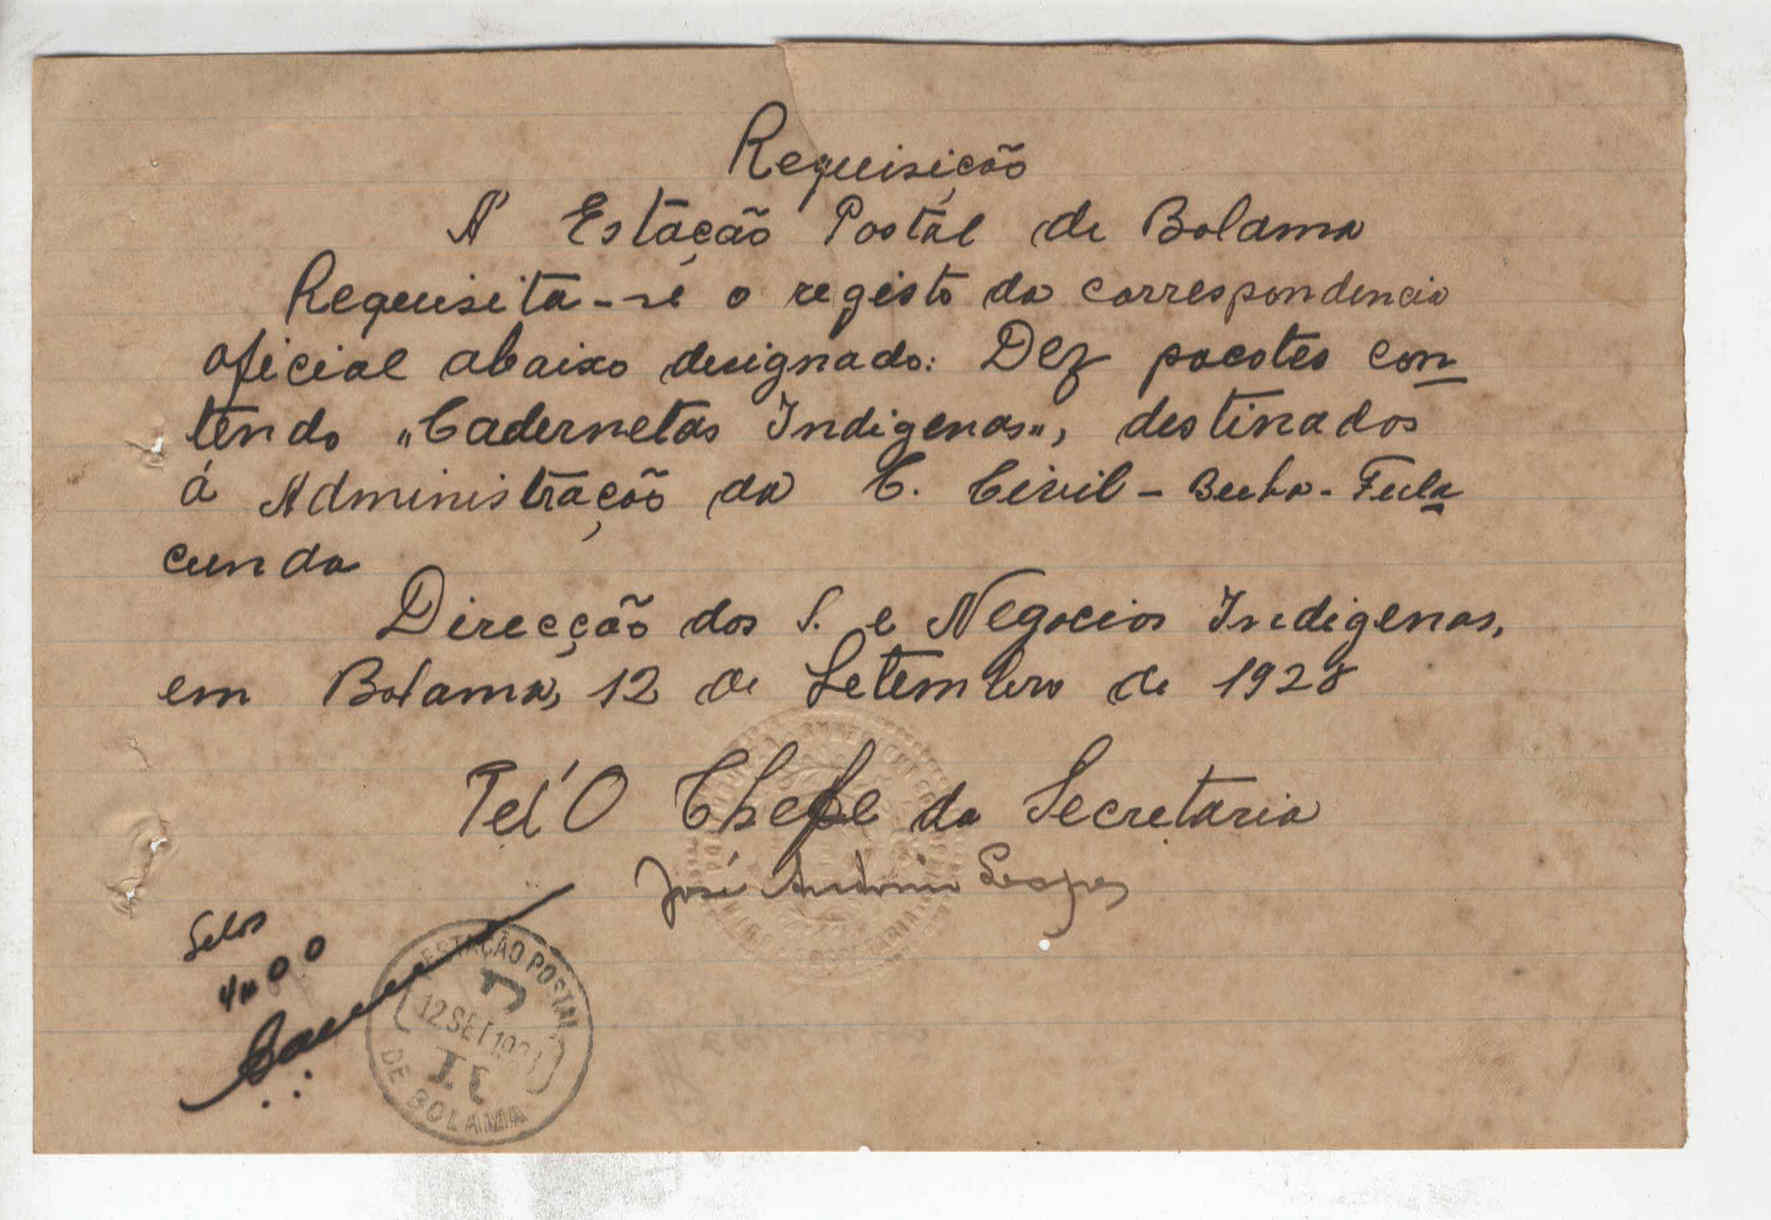 Requisição
A' Estação Postal de Bolama
Requisita-se o registo da correspondencia
oficial abaixo designado: Dez pacotes con
tendo "Cadernetas Indigenas", destinados
á Administração da C. Civil - Buba - Fula
cunda
Direcção dos S. e Negocios Indigenas,
em Bolama, 12 de Setembro de 1928
Pel'O Chefe da Secretaria
José António Lopes
Selos
4$00
ESTAÇÃO POSTAL
12 SET 19
DE BOLAMA